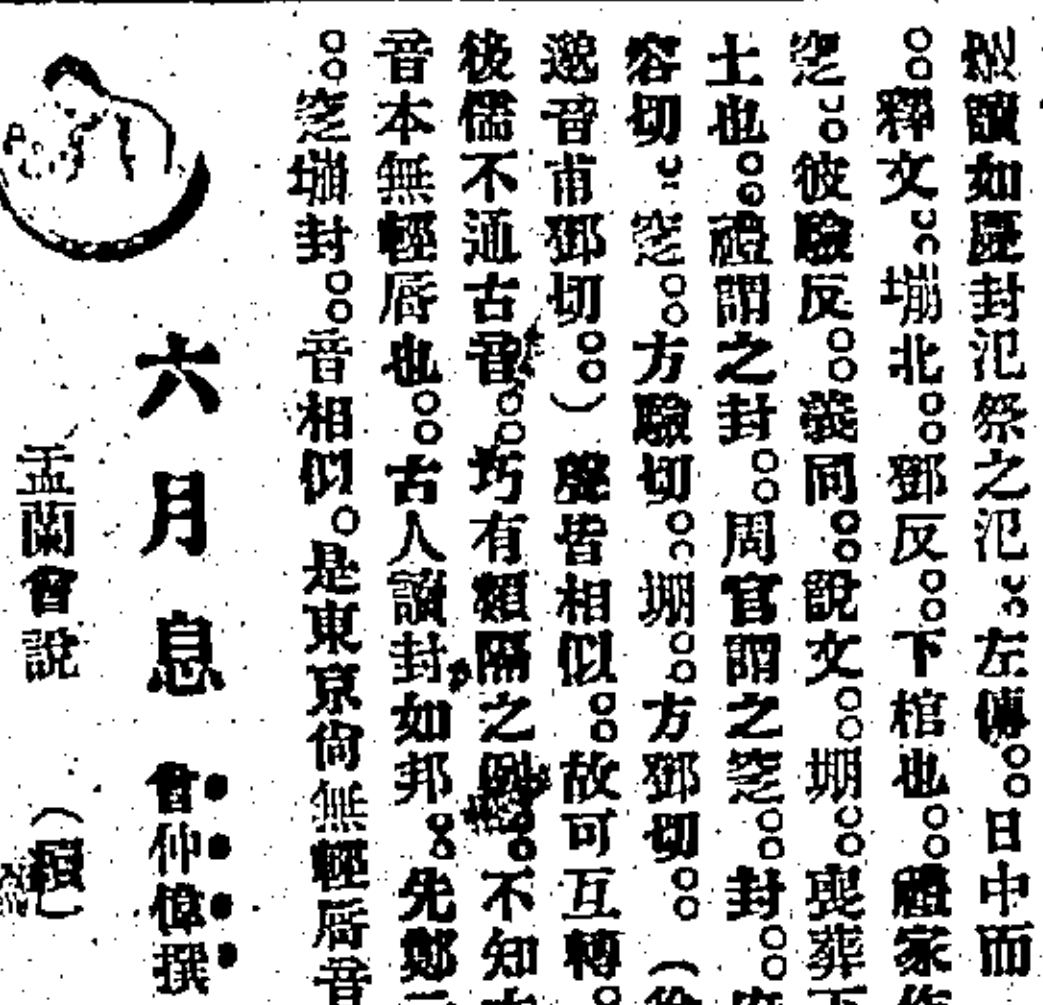 讀如慶封氾祭之氾。左傳。日中而
。釋文。塴北。鄧反。下棺也。禮家作
窆。彼驗反。義同。說文。堋。喪葬下
士也。禮謂之封。周官謂之窆。封。府
容切。窆。方驗切。堋。方鄧切。(徐
邈音甫鄧切。)聲皆相似。故可互轉
後儒不通古音。巧有類隔之例。不知古
音本無輕唇也。古人讀封如邦。先鄭云
。窆塴封。音相似。是東京尚無輕唇音
六月息 曾仲偉撰
盂蘭會說 (續)